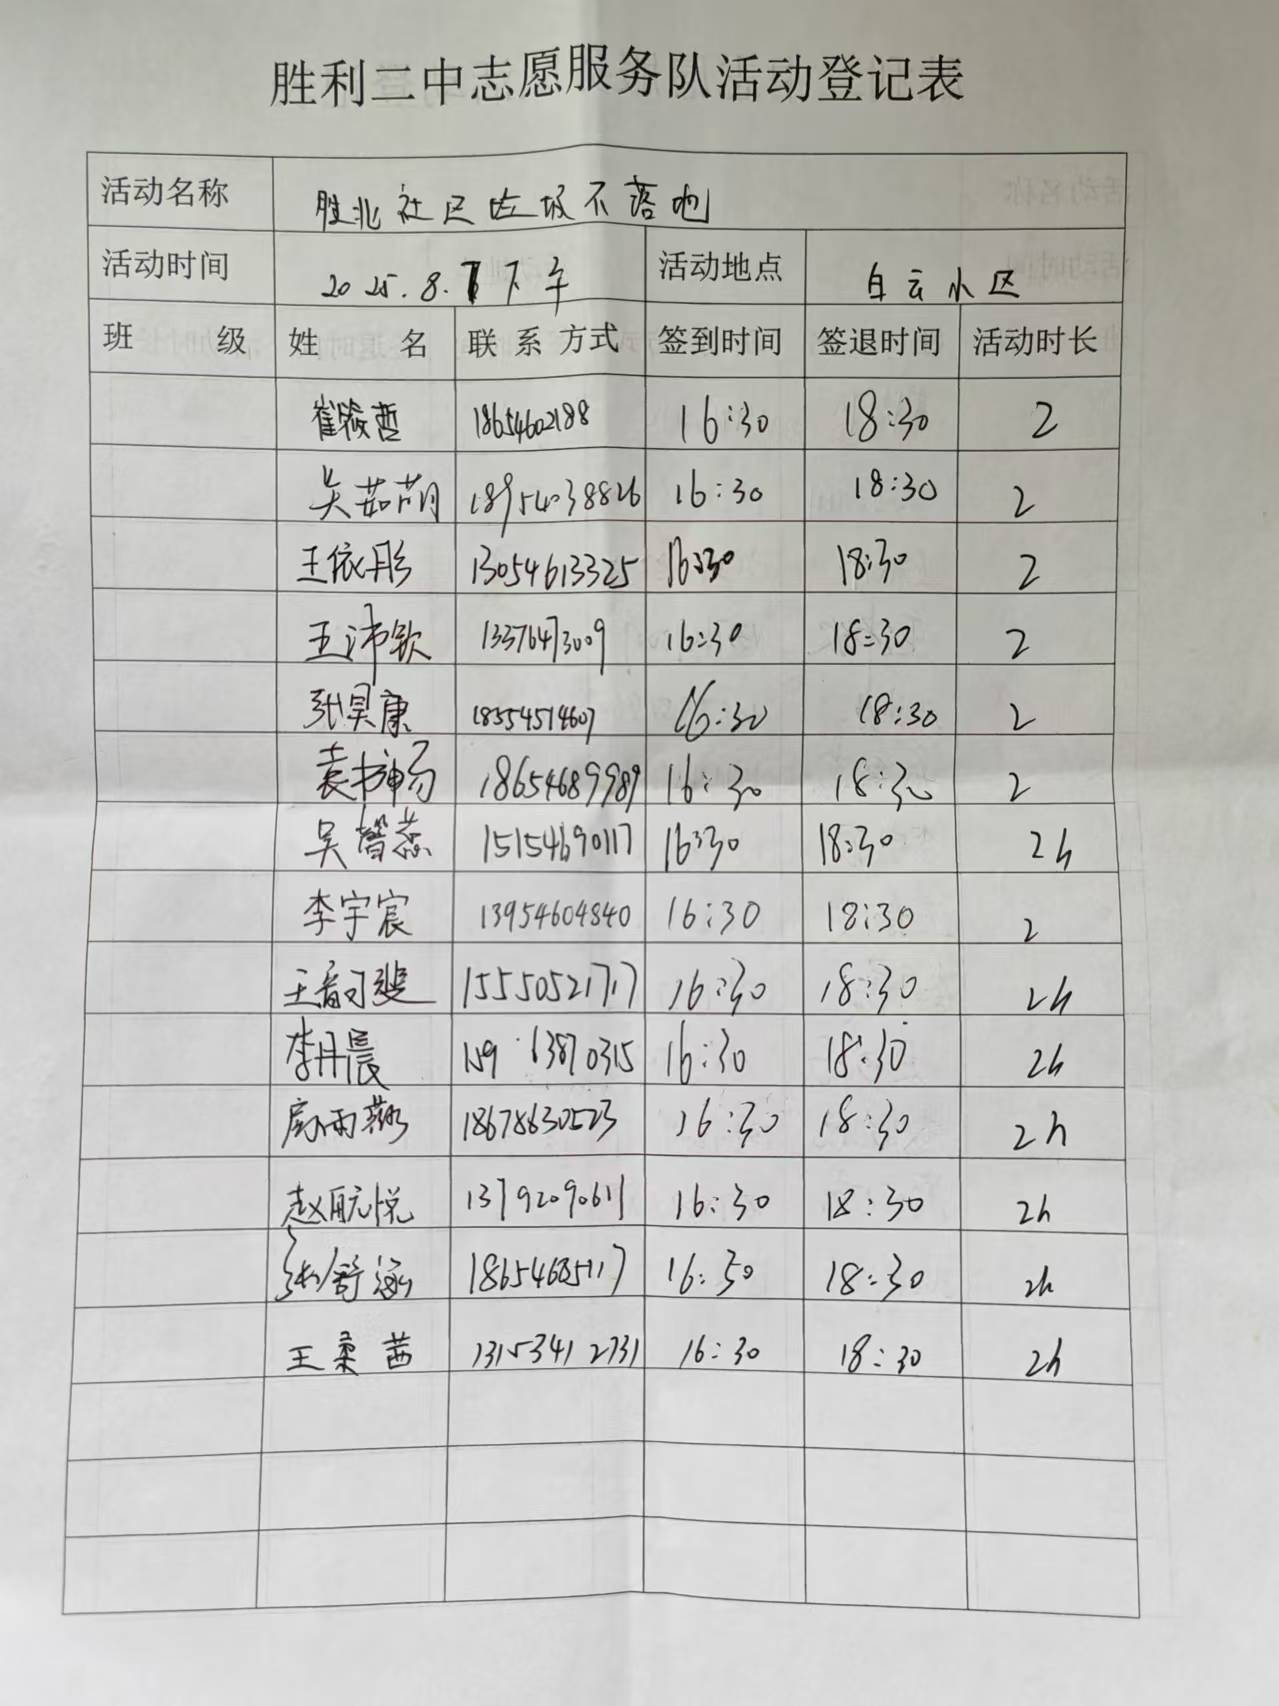 胜利二中志愿服务队活动登记表
活动名称 胜北社区垃圾不落地
活动时间 2025.8. 下午 活动地点 白云小区
班 级 姓 名 联系方式 签到时间 签退时间 活动时长
崔筱哲 18654602188 16:30 18:30 2
吴茹萌 18954038826 16:30 18:30 2
王依彤 13054613325 16:30 18:30 2
王沛钦 13376473009 16:30 18:30 2
张昊康 18554514607 16:30 18:30 2
袁书畅 18654689989 16:30 18:30 2
吴馨蕊 15154690117 16:30 18:30 2h
李宇宸 13954604840 16:30 18:30 2
王 斐 15550521717 16:30 18:30 2h
李丹晨 159 63870315 16:30 18:30 2h
雨 18678630523 16:30 18:30 2h
赵航悦 13792090611 16:30 18:30 2h
张舒涵 18654685117 16:30 18:30 2h
王柔茜 13153412731 16:30 18:30 2h